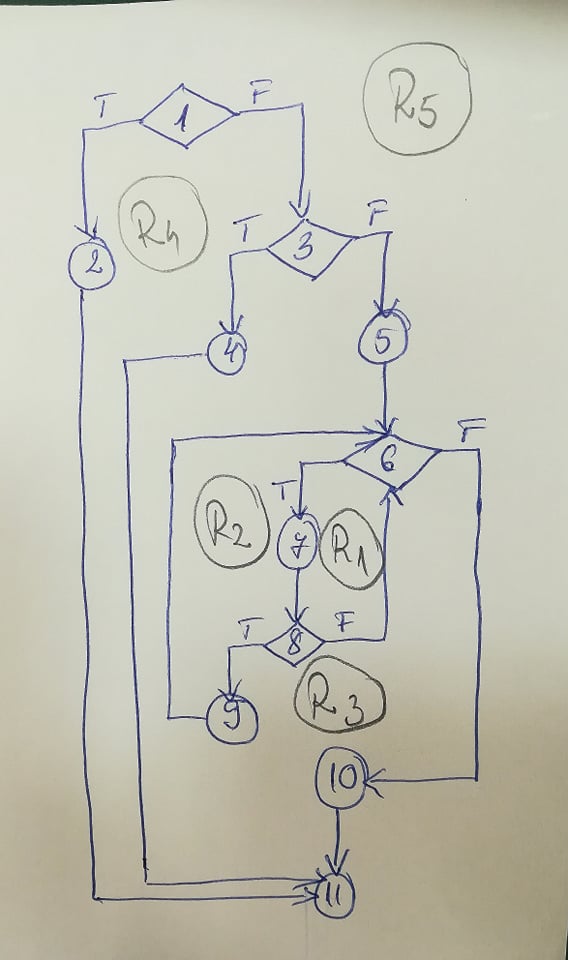 R5
T 1 F
R4
2
T 3 F
4
5
6 F
T
R2 7 R1
T 8 F
9 R3
10
11